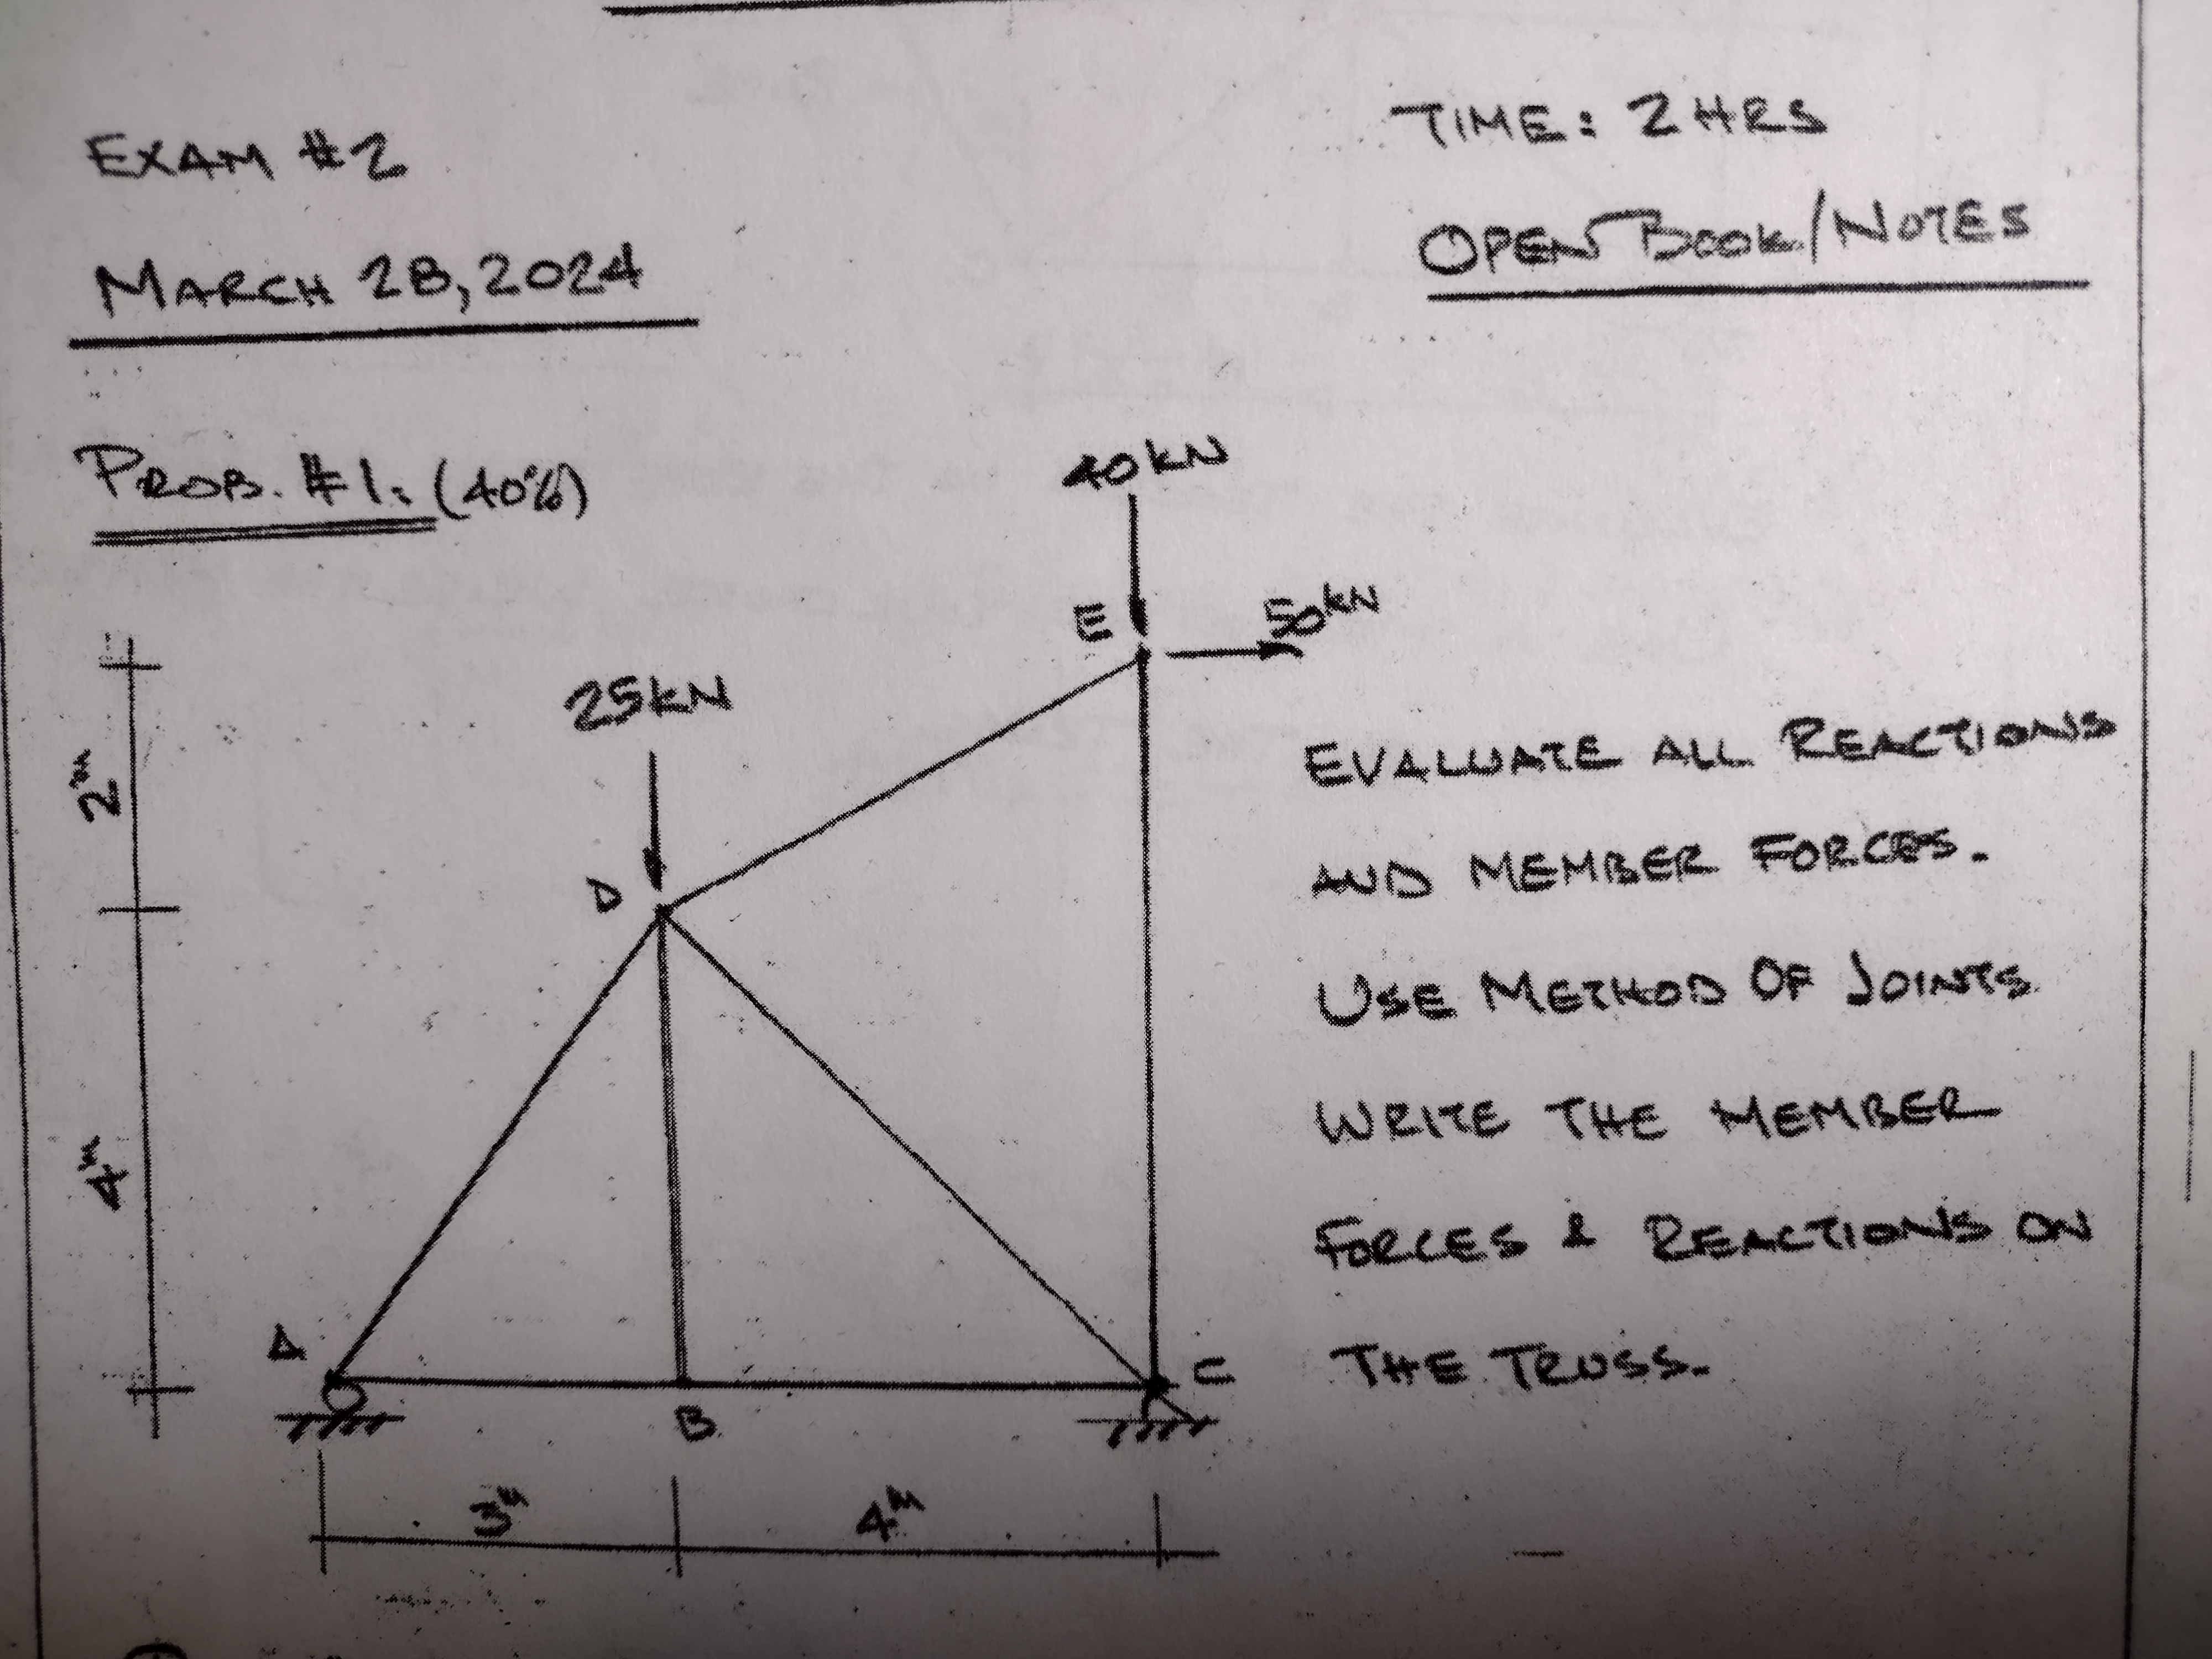 EXAM #2
TIME: 2 HRS
MARCH 28, 2024
OPEN BOOK/NOTES
PROB. #1: (40%)
40 kN
E
50 kN
25 kN
2m
D
EVALUATE ALL REACTIONS
AND MEMBER FORCES.
USE METHOD OF JOINTS
WRITE THE MEMBER
FORCES & REACTIONS ON
THE TRUSS.
4m
A
B
C
3m
4m